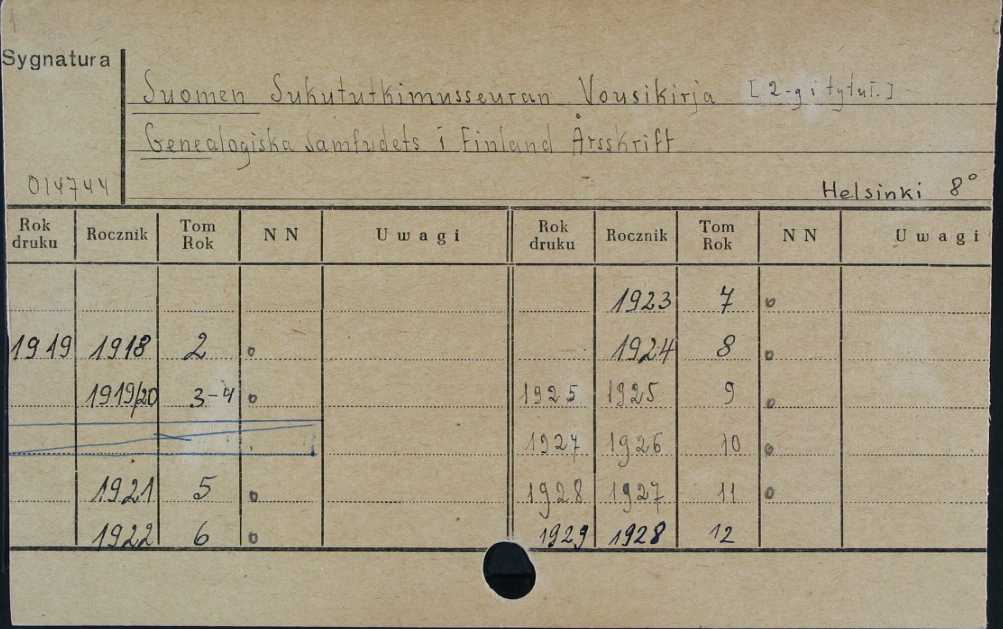 Sygnatura
Suomen Sukututkimusseuran Vousikirja [2-gi tytuł.]
Genealogiska Samfudets i Finland Årsskrift
014744
Helsinki 8°
Rok druku Rocznik Tom Rok N N Uwagi Rok druku Rocznik Tom Rok N N Uwagi
1923 7 o
1919 1918 2 o 1924 8 o
1919/20 3-4 o 1925 1925 9 o
1927 1926 10 o
1921 5 o 1928 1927 11 o
1922 6 o 1929 1928 12